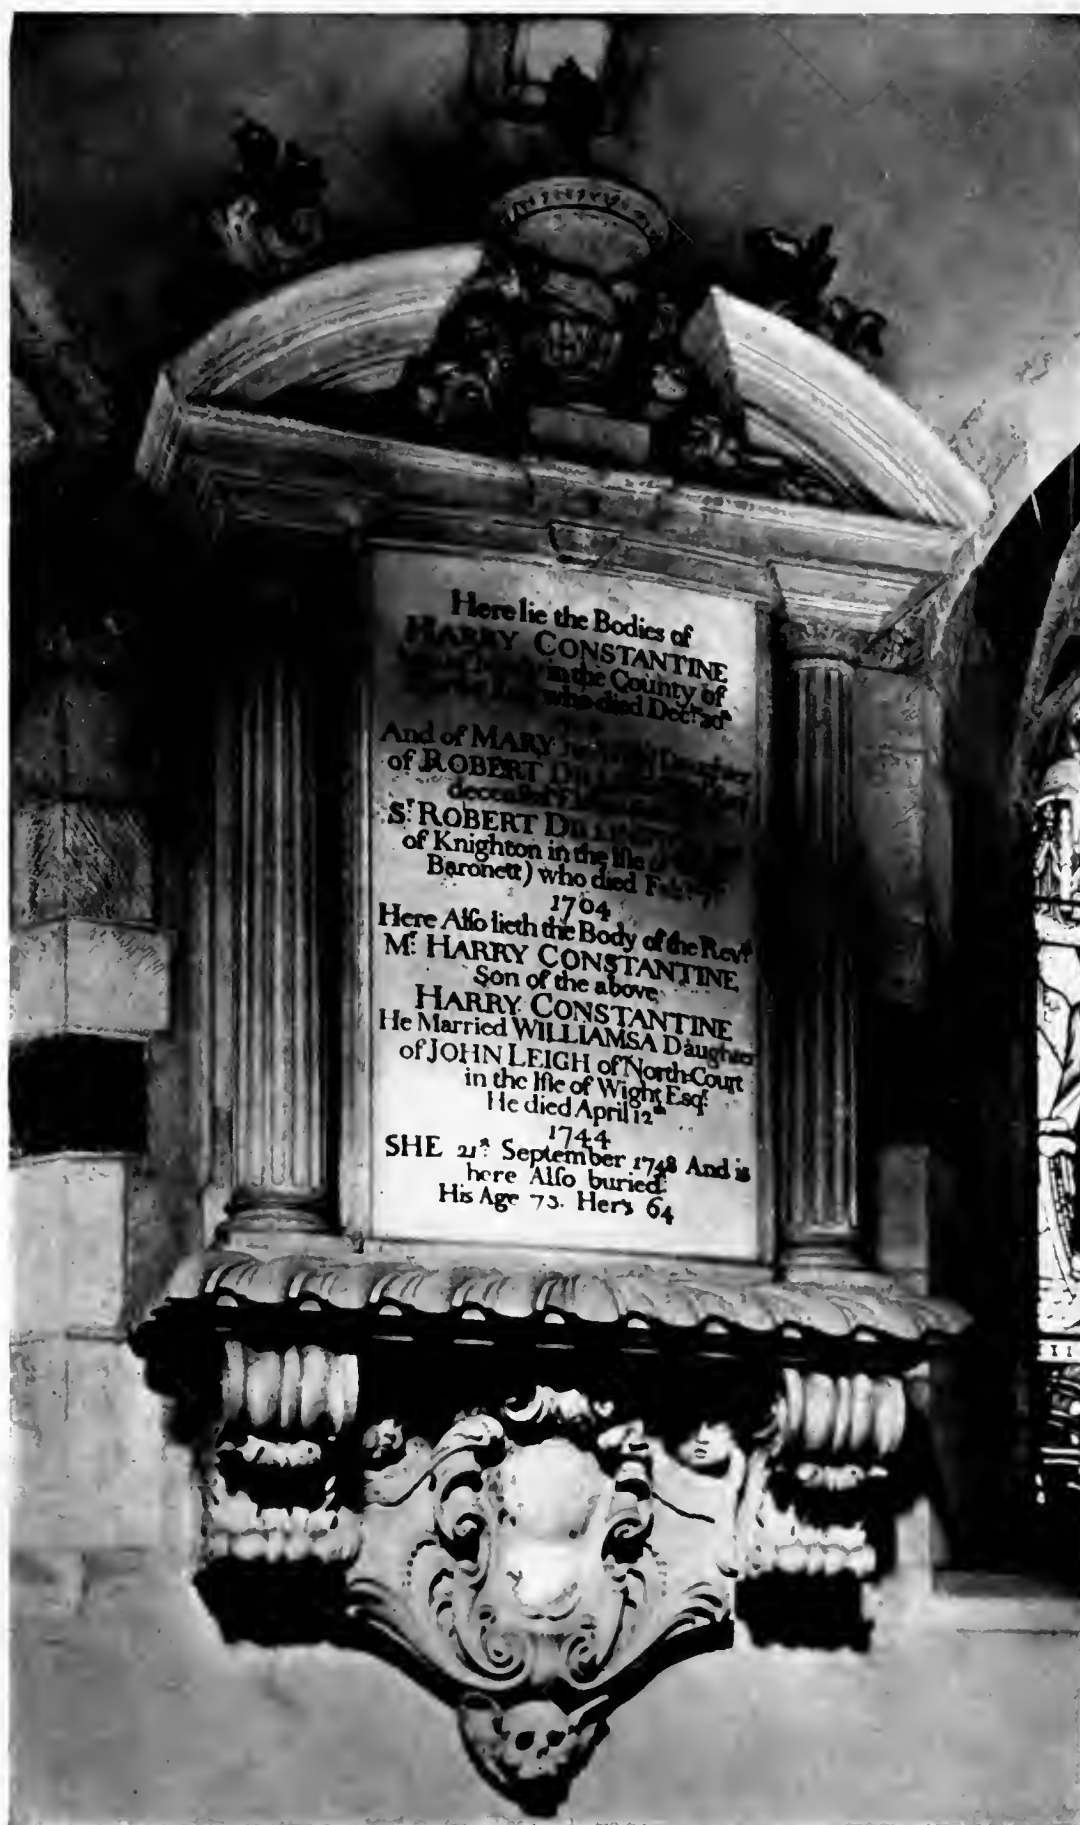 Here lie the Bodies of
HARRY CONSTANTINE
in the County of
who died Decbr. 20th
And of MARY Daughter
of ROBERT
deceased
Sr. ROBERT
of Knighton in the Isle of
Baronett) who died
1704
Here Also lieth the Body of the Revd.
Mr. HARRY CONSTANTINE
Son of the above
HARRY CONSTANTINE
He Married WILLIAMSA Daughter
of JOHN LEIGH of North-Court
in the Isle of Wight Esqr.
He died April 12th
1744
SHE 21st September 1748 And is
here Also buried.
His Age 73. Hers 64